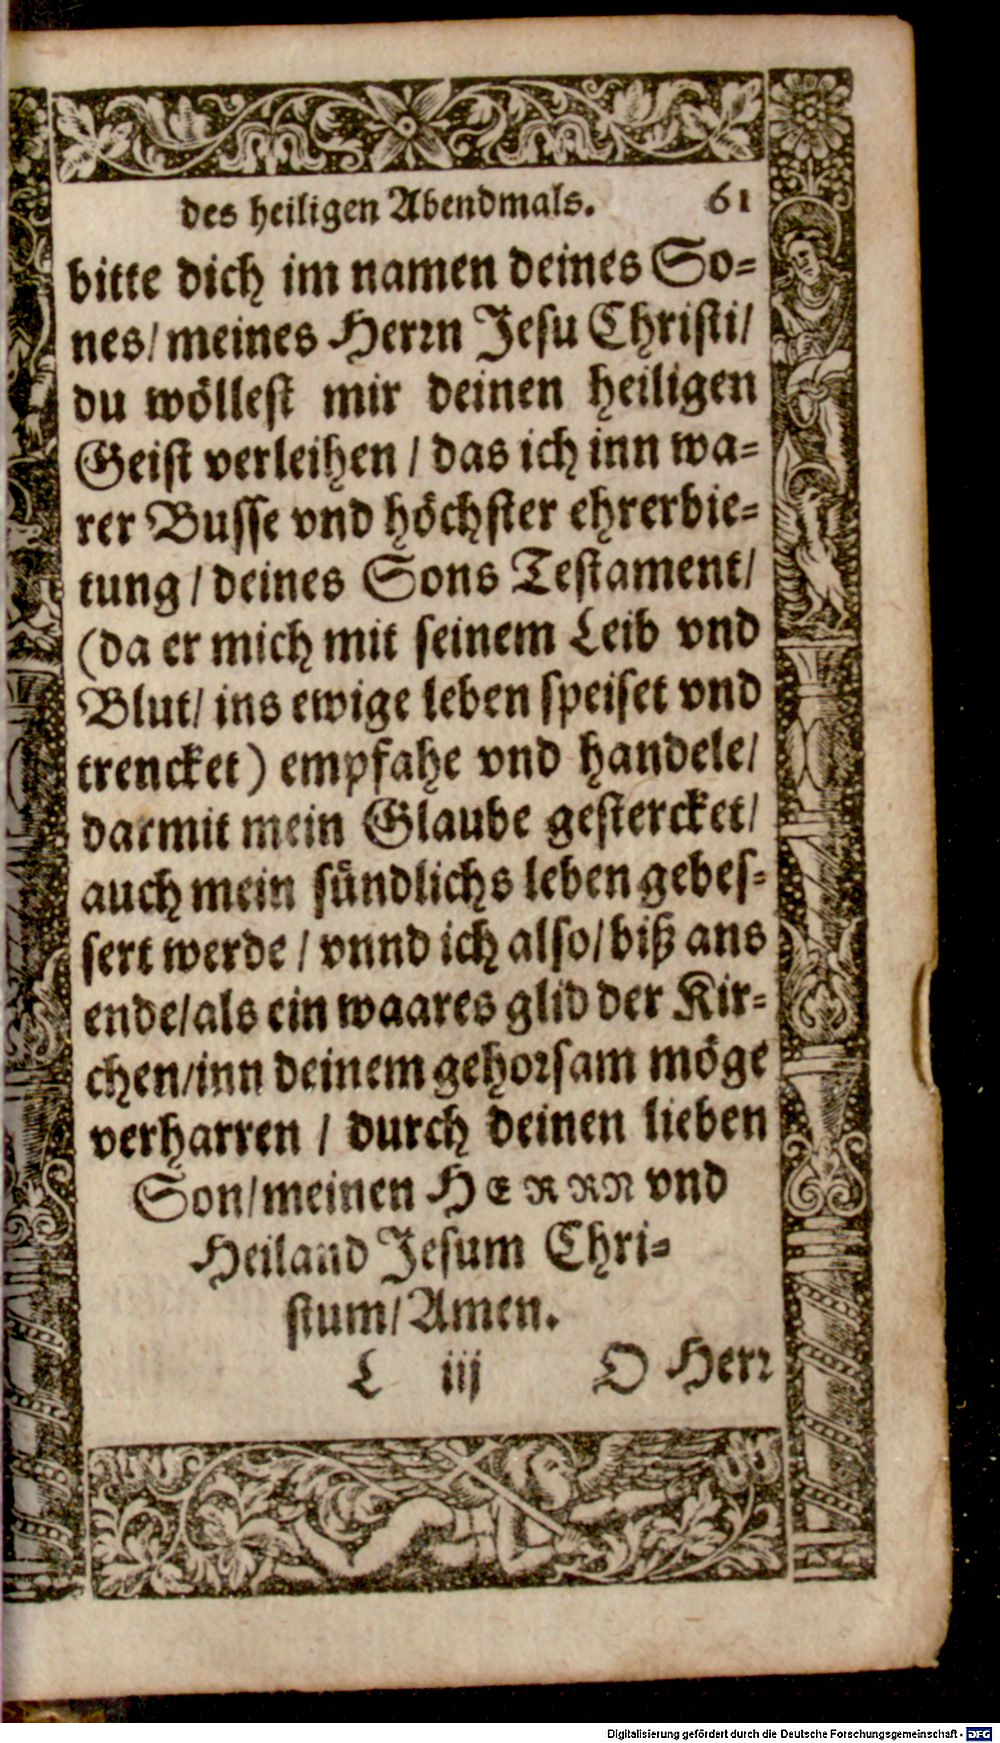 des heiligen Abendmals. 61
bitte dich im namen deines So-
nes/ meines Herrn Jesu Christi/
du wöllest mir deinen heiligen
Geist verleihen / das ich inn wa-
rer Busse vnd höchster ehrerbie-
tung / deines Sons Testament/
(da er mich mit seinem Leib vnd
Blut/ ins ewige leben speiset vnd
trencket) empfahe vnd handele/
darmit mein Glaube gestercket/
auch mein sündlichs leben gebes-
sert werde / vnnd ich also/ biß ans
ende/als ein waares glid der Kir-
chen/inn deinem gehorsam möge
verharren / durch deinen lieben
Son/meinen HERRN vnd
Heiland Jesum Chri-
stum/ Amen.
L iij O Herr
Digitalisierung gefördert durch die Deutsche Forschungsgemeinschaft - DFG